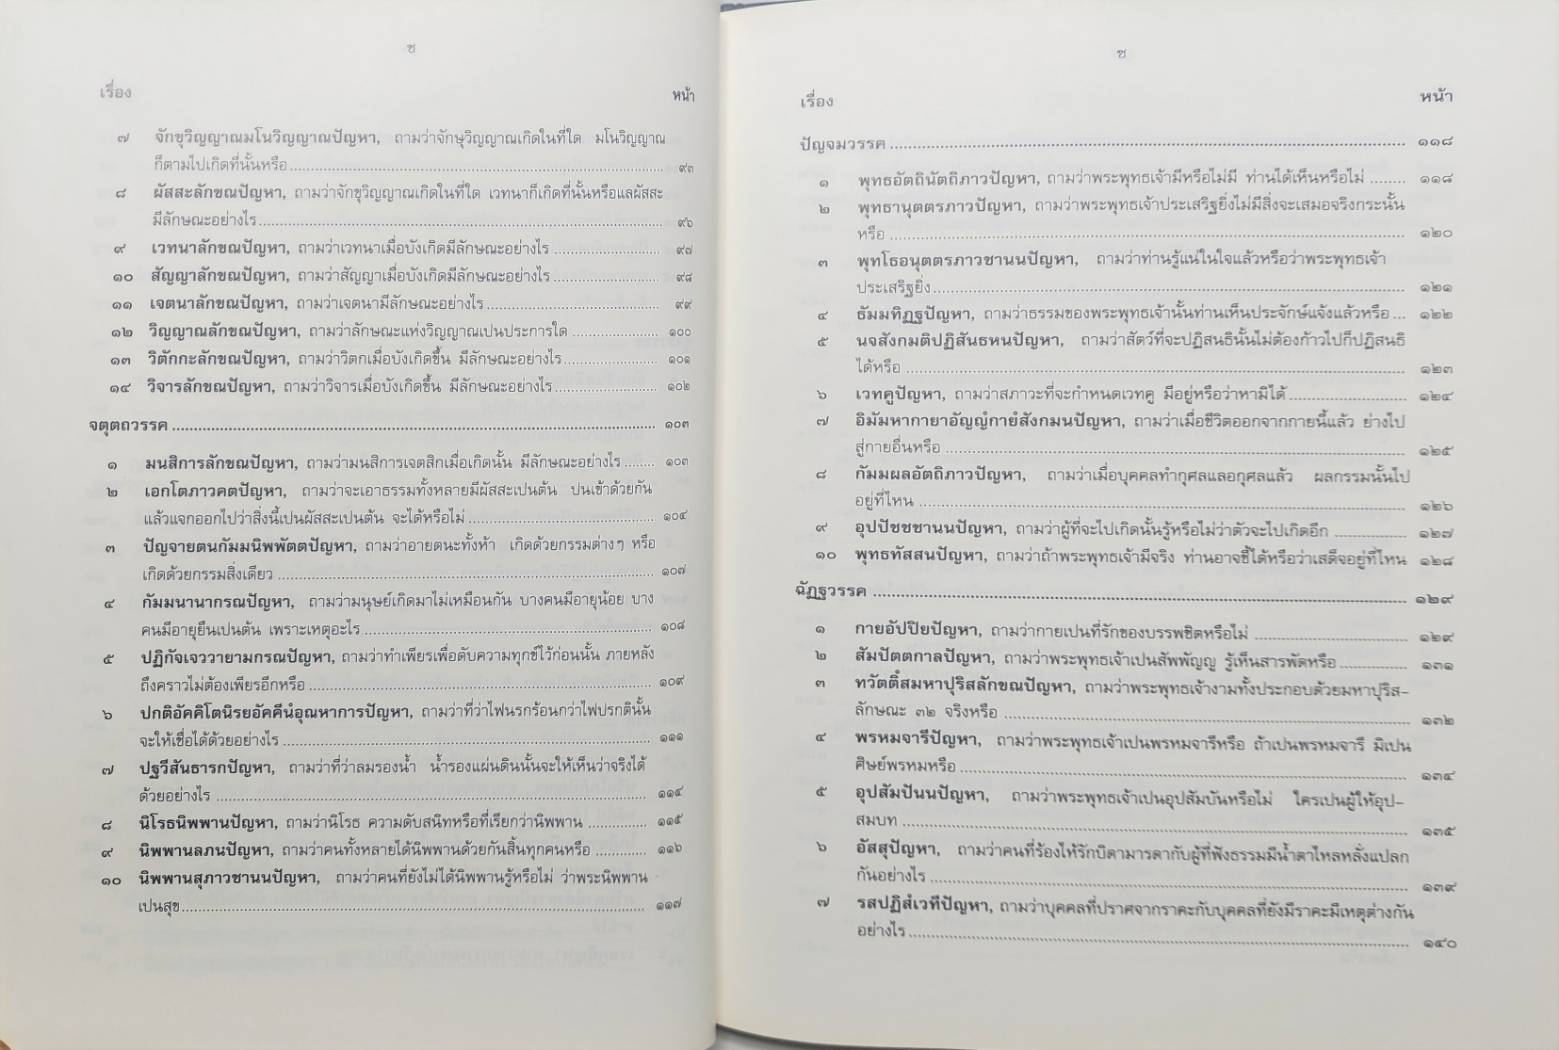 ช
เรื่อง
หน้า
๗ จักขุวิญญาณมโนวิญญาณปัญหา, ถามว่าจักษุวิญญาณเกิดในที่ใด มโนวิญญาณ
ก็ตามไปเกิดที่นั้นหรือ ๙๓
๘ ผัสสะลักขณปัญหา, ถามว่าจักขุวิญญาณเกิดในที่ใด เวทนาก็เกิดที่นั้นหรือแลผัสสะ
มีลักษณะอย่างไร ๙๖
๙ เวทนาลักขณปัญหา, ถามว่าเวทนาเมื่อบังเกิดมีลักษณะอย่างไร ๙๗
๑๐ สัญญาลักขณปัญหา, ถามว่าสัญญาเมื่อบังเกิดมีลักษณะอย่างไร ๙๘
๑๑ เจตนาลักขณปัญหา, ถามว่าเจตนามีลักษณะอย่างไร ๙๙
๑๒ วิญญาณลักขณปัญหา, ถามว่าลักษณะแห่งวิญญาณเปนประการใด ๑๐๐
๑๓ วิตักกะลักขณปัญหา, ถามว่าวิตกเมื่อบังเกิดขึ้น มีลักษณะอย่างไร ๑๐๑
๑๔ วิจารลักขณปัญหา, ถามว่าวิจารเมื่อบังเกิดขึ้น มีลักษณะอย่างไร ๑๐๒
จตุตถวรรค ๑๐๓
๑ มนสิการลักขณปัญหา, ถามว่ามนสิการเจตสิกเมื่อเกิดนั้น มีลักษณะอย่างไร ๑๐๓
๒ เอกโตภาวคตปัญหา, ถามว่าจะเอาธรรมทั้งหลายมีผัสสะเปนต้น ปนเข้าด้วยกัน
แล้วแจกออกไปว่าสิ่งนี้เปนผัสสะเปนต้น จะได้หรือไม่ ๑๐๔
๓ ปัญจายตนกัมมนิพพัตตปัญหา, ถามว่าอายตนะทั้งห้า เกิดด้วยกรรมต่างๆ หรือ
เกิดด้วยกรรมสิ่งเดียว ๑๐๗
๔ กัมมนานากรณปัญหา, ถามว่ามนุษย์เกิดมาไม่เหมือนกัน บางคนมีอายุน้อย บาง
คนมีอายุยืนเปนต้น เพราะเหตุอะไร ๑๐๘
๕ ปฏิกัจเจววายามกรณปัญหา, ถามว่าทำเพียรเพื่อดับความทุกข์ไว้ก่อนนั้น ภายหลัง
ถึงคราวไม่ต้องเพียรอีกหรือ ๑๐๙
๖ ปกติอัคคิโตนิรยอัคคีนํอุณหาการปัญหา, ถามว่าที่ว่าไฟนรกร้อนกว่าไฟปรกตินั้น
จะให้เชื่อได้ด้วยอย่างไร ๑๑๑
๗ ปฐวีสันธารกปัญหา, ถามว่าที่ว่าลมรองน้ำ น้ำรองแผ่นดินนั้นจะให้เห็นว่าจริงได้
ด้วยอย่างไร ๑๑๔
๘ นิโรธนิพพานปัญหา, ถามว่านิโรธ ความดับสนิทหรือที่เรียกว่านิพพาน ๑๑๕
๙ นิพพานลภนปัญหา, ถามว่าคนทั้งหลายได้นิพพานด้วยกันสิ้นทุกคนหรือ ๑๑๖
๑๐ นิพพานสุภาวชานนปัญหา, ถามว่าคนที่ยังไม่ได้นิพพานรู้หรือไม่ ว่าพระนิพพาน
เปนสุข ๑๑๗
ซ
เรื่อง
หน้า
ปัญจมวรรค ๑๑๘
๑ พุทธอัตถินัตถิภาวปัญหา, ถามว่าพระพุทธเจ้ามีหรือไม่มี ท่านได้เห็นหรือไม่ ๑๑๘
๒ พุทธานุตตรภาวปัญหา, ถามว่าพระพุทธเจ้าประเสริฐยิ่งไม่มีสิ่งจะเสมอจริงกระนั้น
หรือ ๑๒๐
๓ พุทโธอนุตตรภาวชานนปัญหา, ถามว่าท่านรู้แน่ในใจแล้วหรือว่าพระพุทธเจ้า
ประเสริฐยิ่ง ๑๒๑
๔ ธัมมทิฏฐปัญหา, ถามว่าธรรมของพระพุทธเจ้านั้นท่านเห็นประจักษ์แจ้งแล้วหรือ ๑๒๒
๕ นจสังกมติปฏิสันธหนปัญหา, ถามว่าสัตว์ที่จะปฏิสนธินั้นไม่ต้องก้าวไปก็ปฏิสนธิ
ได้หรือ ๑๒๓
๖ เวทคูปัญหา, ถามว่าสภาวะที่จะกำหนดเวทคู มีอยู่หรือว่าหามิได้ ๑๒๔
๗ อิมัมหากายาอัญญํกายํสังกมนปัญหา, ถามว่าเมื่อชีวิตออกจากกายนี้แล้ว ย่างไป
สู่กายอื่นหรือ ๑๒๕
๘ กัมมผลอัตถิภาวปัญหา, ถามว่าเมื่อบุคคลทำกุศลแลอกุศลแล้ว ผลกรรมนั้นไป
อยู่ที่ไหน ๑๒๖
๙ อุปปัชชชานนปัญหา, ถามว่าผู้ที่จะไปเกิดนั้นรู้หรือไม่ว่าตัวจะไปเกิดอีก ๑๒๗
๑๐ พุทธทัสสนปัญหา, ถามว่าถ้าพระพุทธเจ้ามีจริง ท่านอาจชี้ได้หรือว่าเสด็จอยู่ที่ไหน ๑๒๘
ฉัฏฐวรรค ๑๒๙
๑ กายอัปปิยปัญหา, ถามว่ากายเปนที่รักของบรรพชิตหรือไม่ ๑๒๙
๒ สัมปัตตกาลปัญหา, ถามว่าพระพุทธเจ้าเปนสัพพัญญู รู้เห็นสารพัดหรือ ๑๓๑
๓ ทวัตติํสมหาปุริสลักขณปัญหา, ถามว่าพระพุทธเจ้างามทั้งประกอบด้วยมหาปุริส-
ลักษณะ ๓๒ จริงหรือ ๑๓๒
๔ พรหมจารีปัญหา, ถามว่าพระพุทธเจ้าเปนพรหมจารีหรือ ถ้าเปนพรหมจารี มิเปน
ศิษย์พรหมหรือ ๑๓๔
๕ อุปสัมปันนปัญหา, ถามว่าพระพุทธเจ้าเปนอุปสัมบันหรือไม่ ใครเปนผู้ให้อุป-
สมบท ๑๓๕
๖ อัสสุปัญหา, ถามว่าคนที่ร้องไห้รักบิดามารดากับผู้ที่ฟังธรรมมีน้ำตาไหลหลั่งแปลก
กันอย่างไร ๑๓๙
๗ รสปฏิสํเวทีปัญหา, ถามว่าบุคคลที่ปราศจากราคะกับบุคคลที่ยังมีราคะมีเหตุต่างกัน
อย่างไร ๑๔๐